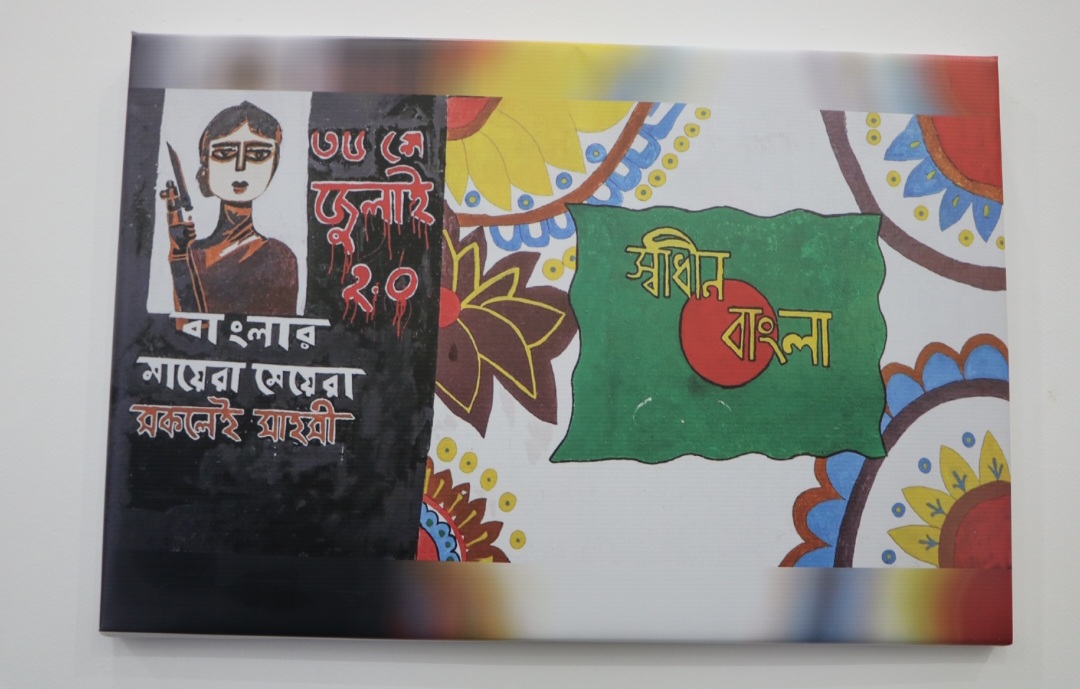 ৩৬ শে
জুলাই
২.০
বাংলার
মায়েরা মেয়েরা
সকলেই সাহসী
স্বাধীন
বাংলা